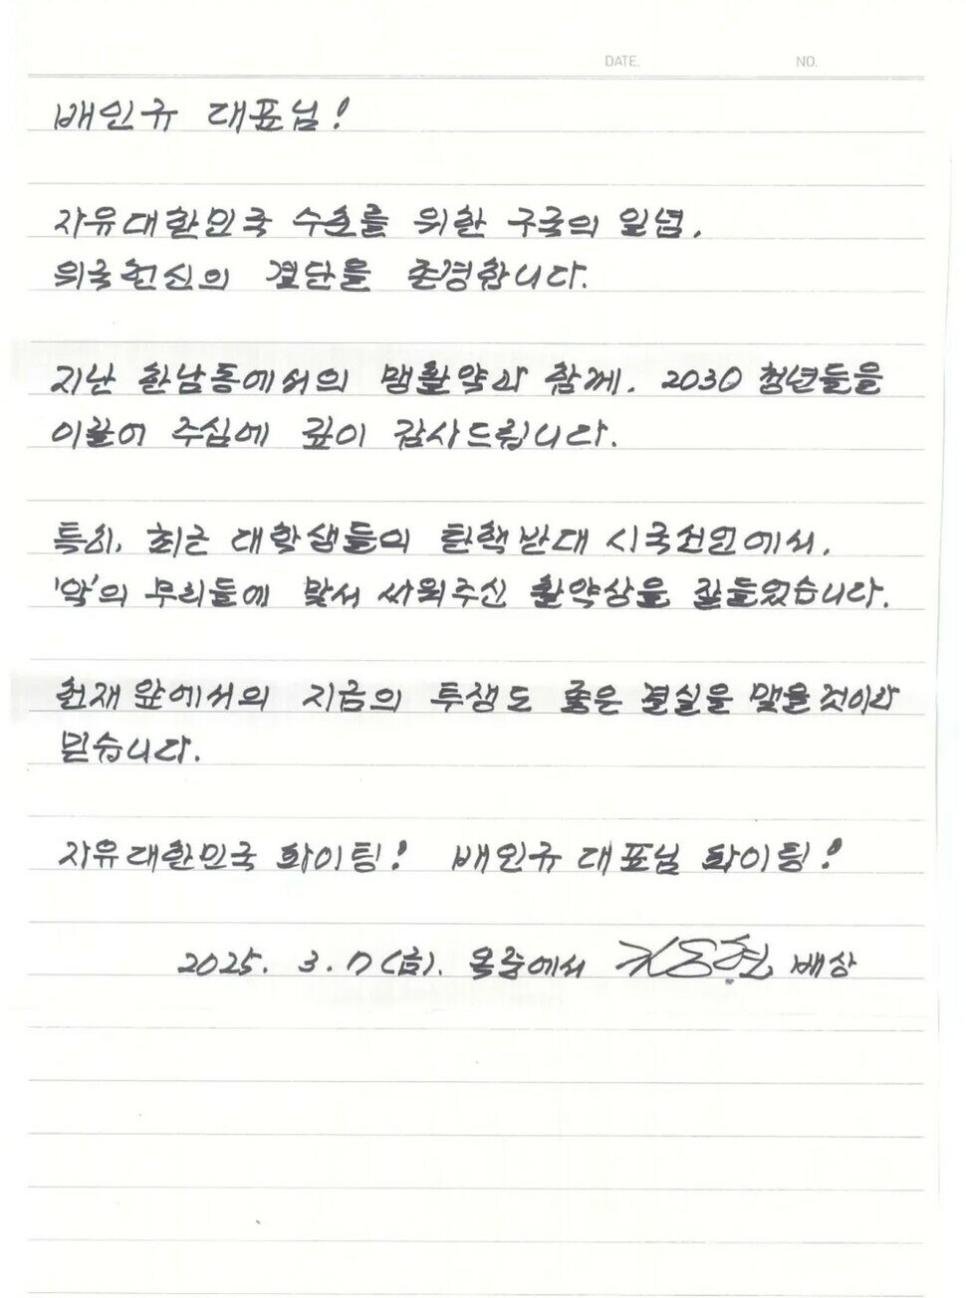 DATE. NO.
배인규 대표님!
자유대한민국 수호를 위한 구국의 일념,
위국헌신의 결단을 존경합니다.
지난 한남동에서의 맹활약과 함께, 2030 청년들을
이끌어 주심에 깊이 감사드립니다.
특히, 최근 대학생들의 탄핵반대 시국선언에서,
'악'의 무리들에 맞서 싸워주신 활약상을 잘들었습니다.
헌재 앞에서의 지금의 투쟁도 좋은 결실을 맺을 것이라
믿습니다.
자유대한민국 화이팅! 배인규 대표님 화이팅!
2025. 3. 7(금). 옥중에서 김용현 배상